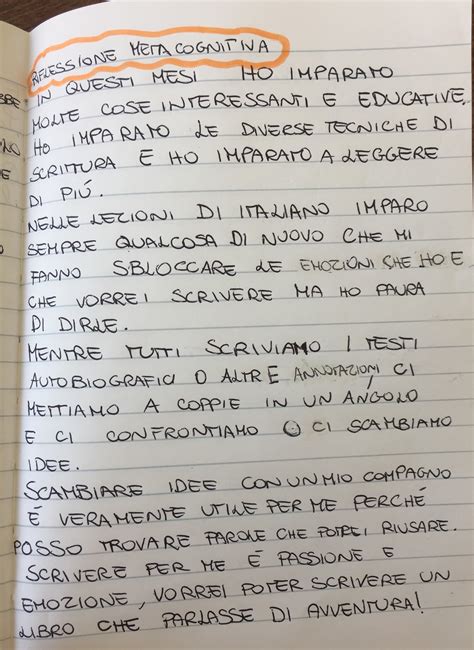 RIFLESSIONE METACOGNITIVA
IN QUESTI MESI HO IMPARATO
MOLTE COSE INTERESSANTI E EDUCATIVE,
HO IMPARATO LE DIVERSE TECNICHE DI
SCRITTURA E HO IMPARATO A LEGGERE
DI PIÚ.
NELLE LEZIONI DI ITALIANO IMPARO
SEMPRE QUALCOSA DI NUOVO CHE MI
FANNO SBLOCCARE LE EMOZIONI CHE HO E
CHE VORREI SCRIVERE MA HO PAURA
DI DIRLE.
MENTRE TUTTI SCRIVIAMO I TESTI
AUTOBIOGRAFICI O ALTRE ANNOTAZIONI CI
METTIAMO A COPPIE IN UN ANGOLO
E CI CONFRONTIAMO O CI SCAMBIAMO
IDEE.
SCAMBIARE IDEE CON UN MIO COMPAGNO
É VERAMENTE UTILE PER ME PERCHÉ
POSSO TROVARE PAROLE CHE POTREI RIUSARE.
SCRIVERE PER ME É PASSIONE E
EMOZIONE, VORREI POTER SCRIVERE UN
LIBRO CHE PARLASSE DI AVVENTURA!